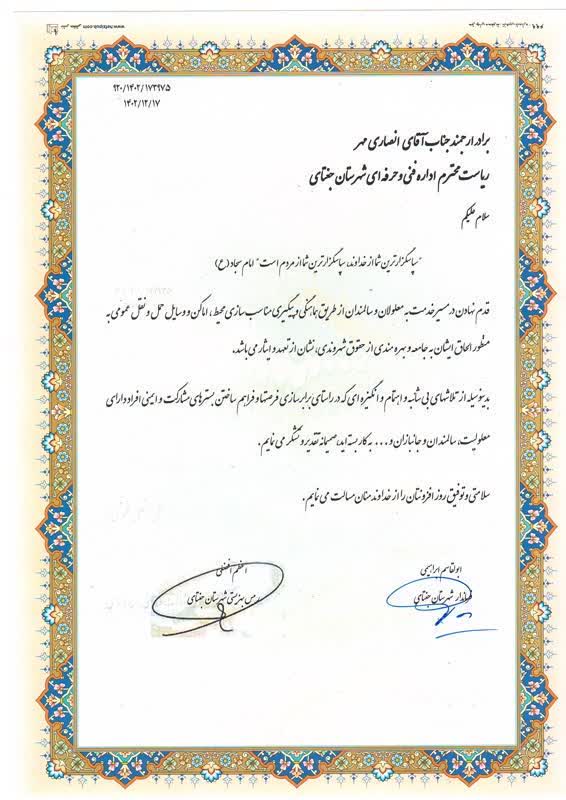 www.hetzipub.com
۹۲۰/۱۴۰۲/۱۷۳۹۷۵
۱۴۰۲/۱۲/۱۷
برادر ارجمند جناب آقای انصاری مهر
ریاست محترم اداره فنی و حرفه ای شهرستان جغتای
سلام علیکم
"سپاسگزارترین شما از خداوند، سپاسگزارترین شما از مردم است" امام سجاد (ع)
قدم نهادن در مسیر خدمت به معلولان و سالمندان از طریق هماهنگی و پیگیری مناسب سازی محیط، اماکن و وسایل حمل و نقل عمومی به
منظور الحاق ایشان به جامعه و بهره مندی از حقوق شهروندی، نشان از تعهد و ایثار می باشد.
بدینوسیله از تلاشهای بی شائبه و اهتمام و انگیزه ای که در راستای برابرسازی فرصتها و فراهم ساختن بسترهای مشارکت و ایمنی افراد دارای
معلولیت، سالمندان و جانبازان و .... به کار بسته اید، صمیمانه تقدیر و تشکر می نمایم.
سلامتی و توفیق روز افزونتان را از خداوند منان مسالت می نمایم.
ابوالقاسم ابراهیمی
فرماندار شهرستان جغتای
اعظم افضلی
رئیس بهزیستی شهرستان جغتای